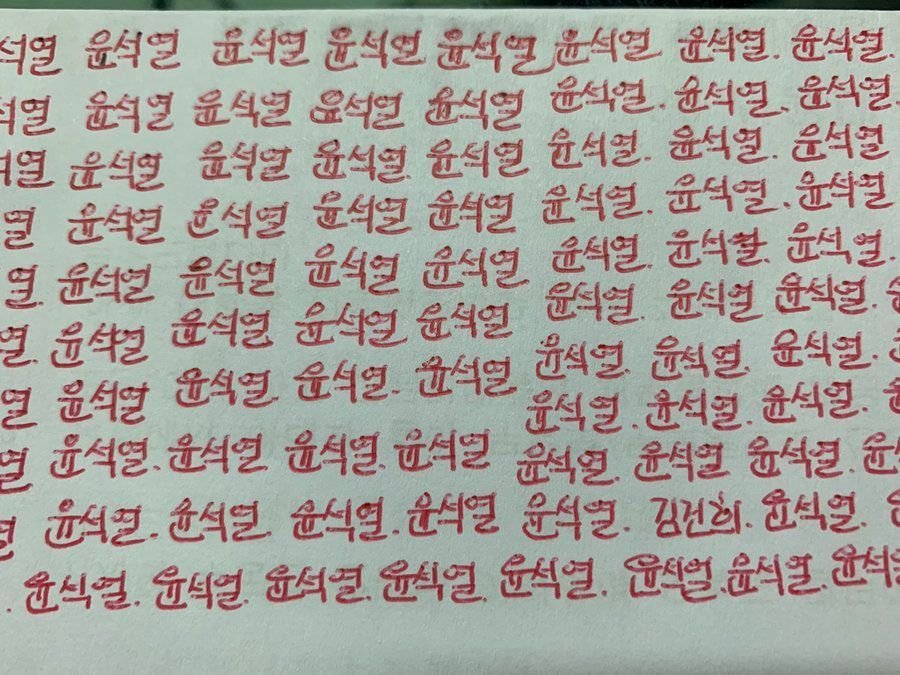 석열 윤석열 윤석열 윤석열 윤석열 윤석열 윤석열. 윤석열.
석열 윤석열 윤석열 윤석열 윤석열 윤석열. 윤석열. 윤석열.
석열 윤석열 윤석열 윤석열. 윤석열 윤석열. 윤석열. 윤석열
열 윤석열 윤석열 윤석열 윤석열 윤석열. 윤석열. 윤석열
열. 윤석열 윤석열 윤석열 윤석열 윤석열. 윤석열 윤석열.
열. 윤석열 윤석열 윤석열 윤석열 윤석열. 윤석열 윤석열.
열 윤석열 윤석열 윤석열. 윤석열 윤석열. 윤석열. 윤석열.
윤석열. 윤석열. 윤석열.
열 윤석열. 윤석열 윤석열. 윤석열 윤석열. 윤석열 윤석열. 윤
열 윤석열. 윤석열. 윤석열. 윤석열 윤석열. 김건희. 윤석열.
윤석열. 윤석열. 윤석열. 윤석열. 윤석열. 윤석열. 윤석열. 윤석열